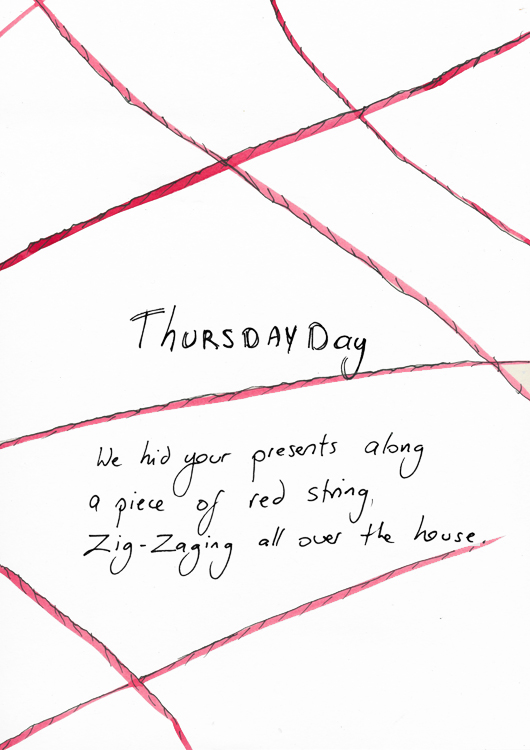 Thursday Day
We hid your presents along
a piece of red string,
Zig-Zaging all over the house.